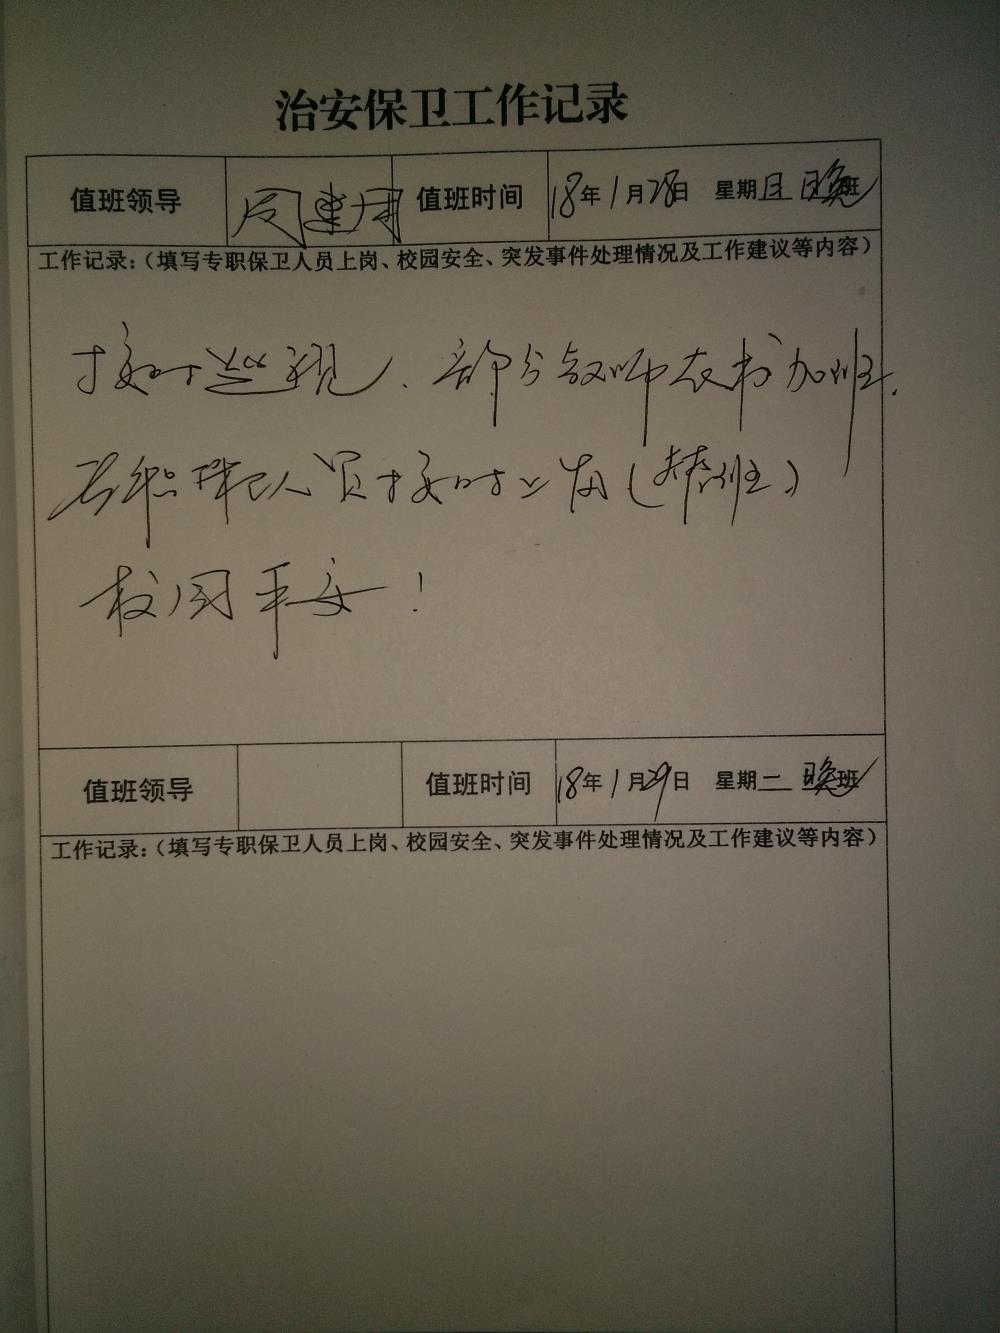 治安保卫工作记录
值班领导 周建 值班时间 18年1月28日 星期日 晚班
工作记录：（填写专职保卫人员上岗、校园安全、突发事件处理情况及工作建议等内容）
按时巡视、部分教师在校加班.
专职保卫人员按时上岗（替班）
校园平安！
值班领导 值班时间 18年1月29日 星期二 晚班
工作记录：（填写专职保卫人员上岗、校园安全、突发事件处理情况及工作建议等内容）